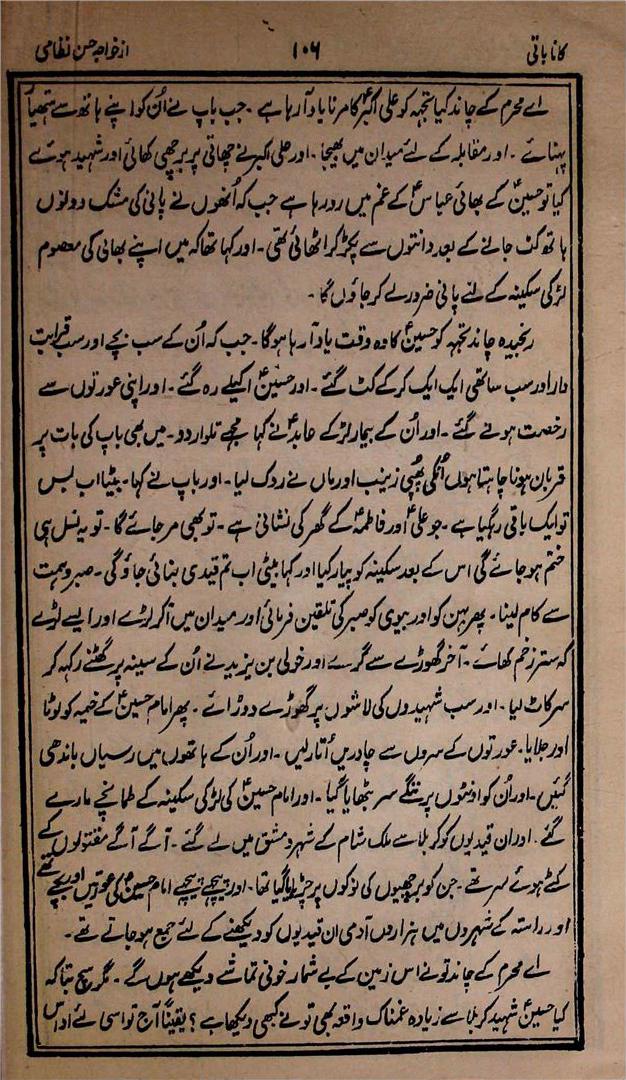 کانا باتی ۱۰۶ از خواجہ حسن نظامی
اے محرم کے چاند کیا تجہہ کو علی اکبرؑ کا مرنا یاد آرہا ہے ۔ جب باپ نے اُن کو اپنے ہاتھ سے ہتھیار
پہنائے ۔ اور مقابلہ کے لئے میدان میں بھیجا ۔ اور علی اکبر نے چھاتی پر برچھی کھائی اور شہید ہوئے
کیا تو حسینؑ کے بھائی عباسؑ کے غم میں رو رہا ہے جب کہ اُنھوں نے پانی کی مشک دونوں
ہاتھ کٹ جانے کے بعد دانتوں سے پکڑ کر اٹھائی تھی ۔ اور کہا تھا کہ میں اپنے بھائی کی معصوم
لڑکی سکینہ کے لئے پانی ضرور لے کر جاؤں گا ۔
رنجیدہ چاند تجہہ کو حسینؑ کا وہ وقت یاد آ رہا ہوگا ۔ جب کہ اُن کے سب بچے اور سب قرابت
دار اور سب ساتھی ایک ایک کر کے کٹ گئے ۔ اور حسینؑ اکیلے رہ گئے ۔ اور اپنی عورتوں سے
رخصت ہونے گئے ۔ اور اُن کے بیمار لڑکے عابدؑ نے کہا مجھے تلوار دو ۔ میں بھی باپ کی بات پر
قربان ہونا چاہتا ہوں اُنکی پھپی زینب اور ماں نے روک لیا ۔ اور باپ نے کہا ۔ بیٹا اب بس
تو ایک باقی رہگیا ہے ۔ جو علیؑ اور فاطمہؑ کے گھر کی نشانی ہے ۔ تو بھی مر جائے گا ۔ تو یہ نسل ہی
ختم ہو جائے گی اس کے بعد سکینہ کو پیار کیا اور کہا بیٹی اب تم قیدی بنائی جاؤ گی ۔ صبر و ہمت
سے کام لینا ۔ پھر بہن کو اور بیوی کو صبر کی تلقین فرمائی اور میدان میں آکر لڑے اور ایسے لڑے
کہ ستر زخم کھائے ۔ آخر گھوڑے سے گرے اور خولی بن یزید نے اُن کے سینہ پر گھٹنے رکہہ کر
سر کاٹ لیا ۔ اور سب شہیدوں کی لاشوں پر گھوڑے دوڑائے ۔ پھر امام حسینؑ کے خیمہ کو لوٹا
اور جلایا ۔ عورتوں کے سروں سے چادریں اُتار لیں ۔ اور اُن کے ہاتھوں میں رسیاں باندھی
گئیں ۔ اور اُن کو اونٹوں پر ننگے سر بٹھایا گیا ۔ اور امام حسینؑ کی لڑکی سکینہ کے طمانچے مارے
گئے ۔ اور ان قیدیوں کو کربلا سے ملک شام کے شہر دمشق میں لے گئے ۔ آگے آگے مقتولوں کے
کٹے ہوئے سر تھے ۔ جن کو برچھیوں کی نوکوں پر چڑہایا گیا تھا ۔ اور پیچھے پیچھے امام حسینؑ کی عورتیں اور بچے تھے
اور راستہ کے شہروں میں ہزاروں آدمی ان قیدیوں کو دیکھنے کے لئے جمع ہو جاتے تھے ۔
اے محرم کے چاند تو نے اس زمین کے بے شمار خونی تماشے دیکھے ہوں گے ۔ مگر سچ بتا کہ
کیا حسینؑ شہید کربلا سے زیادہ غمناک واقعہ بھی تو نے کبھی دیکھا ہے ؟ یقیناً آج تو اسی لئے اداس